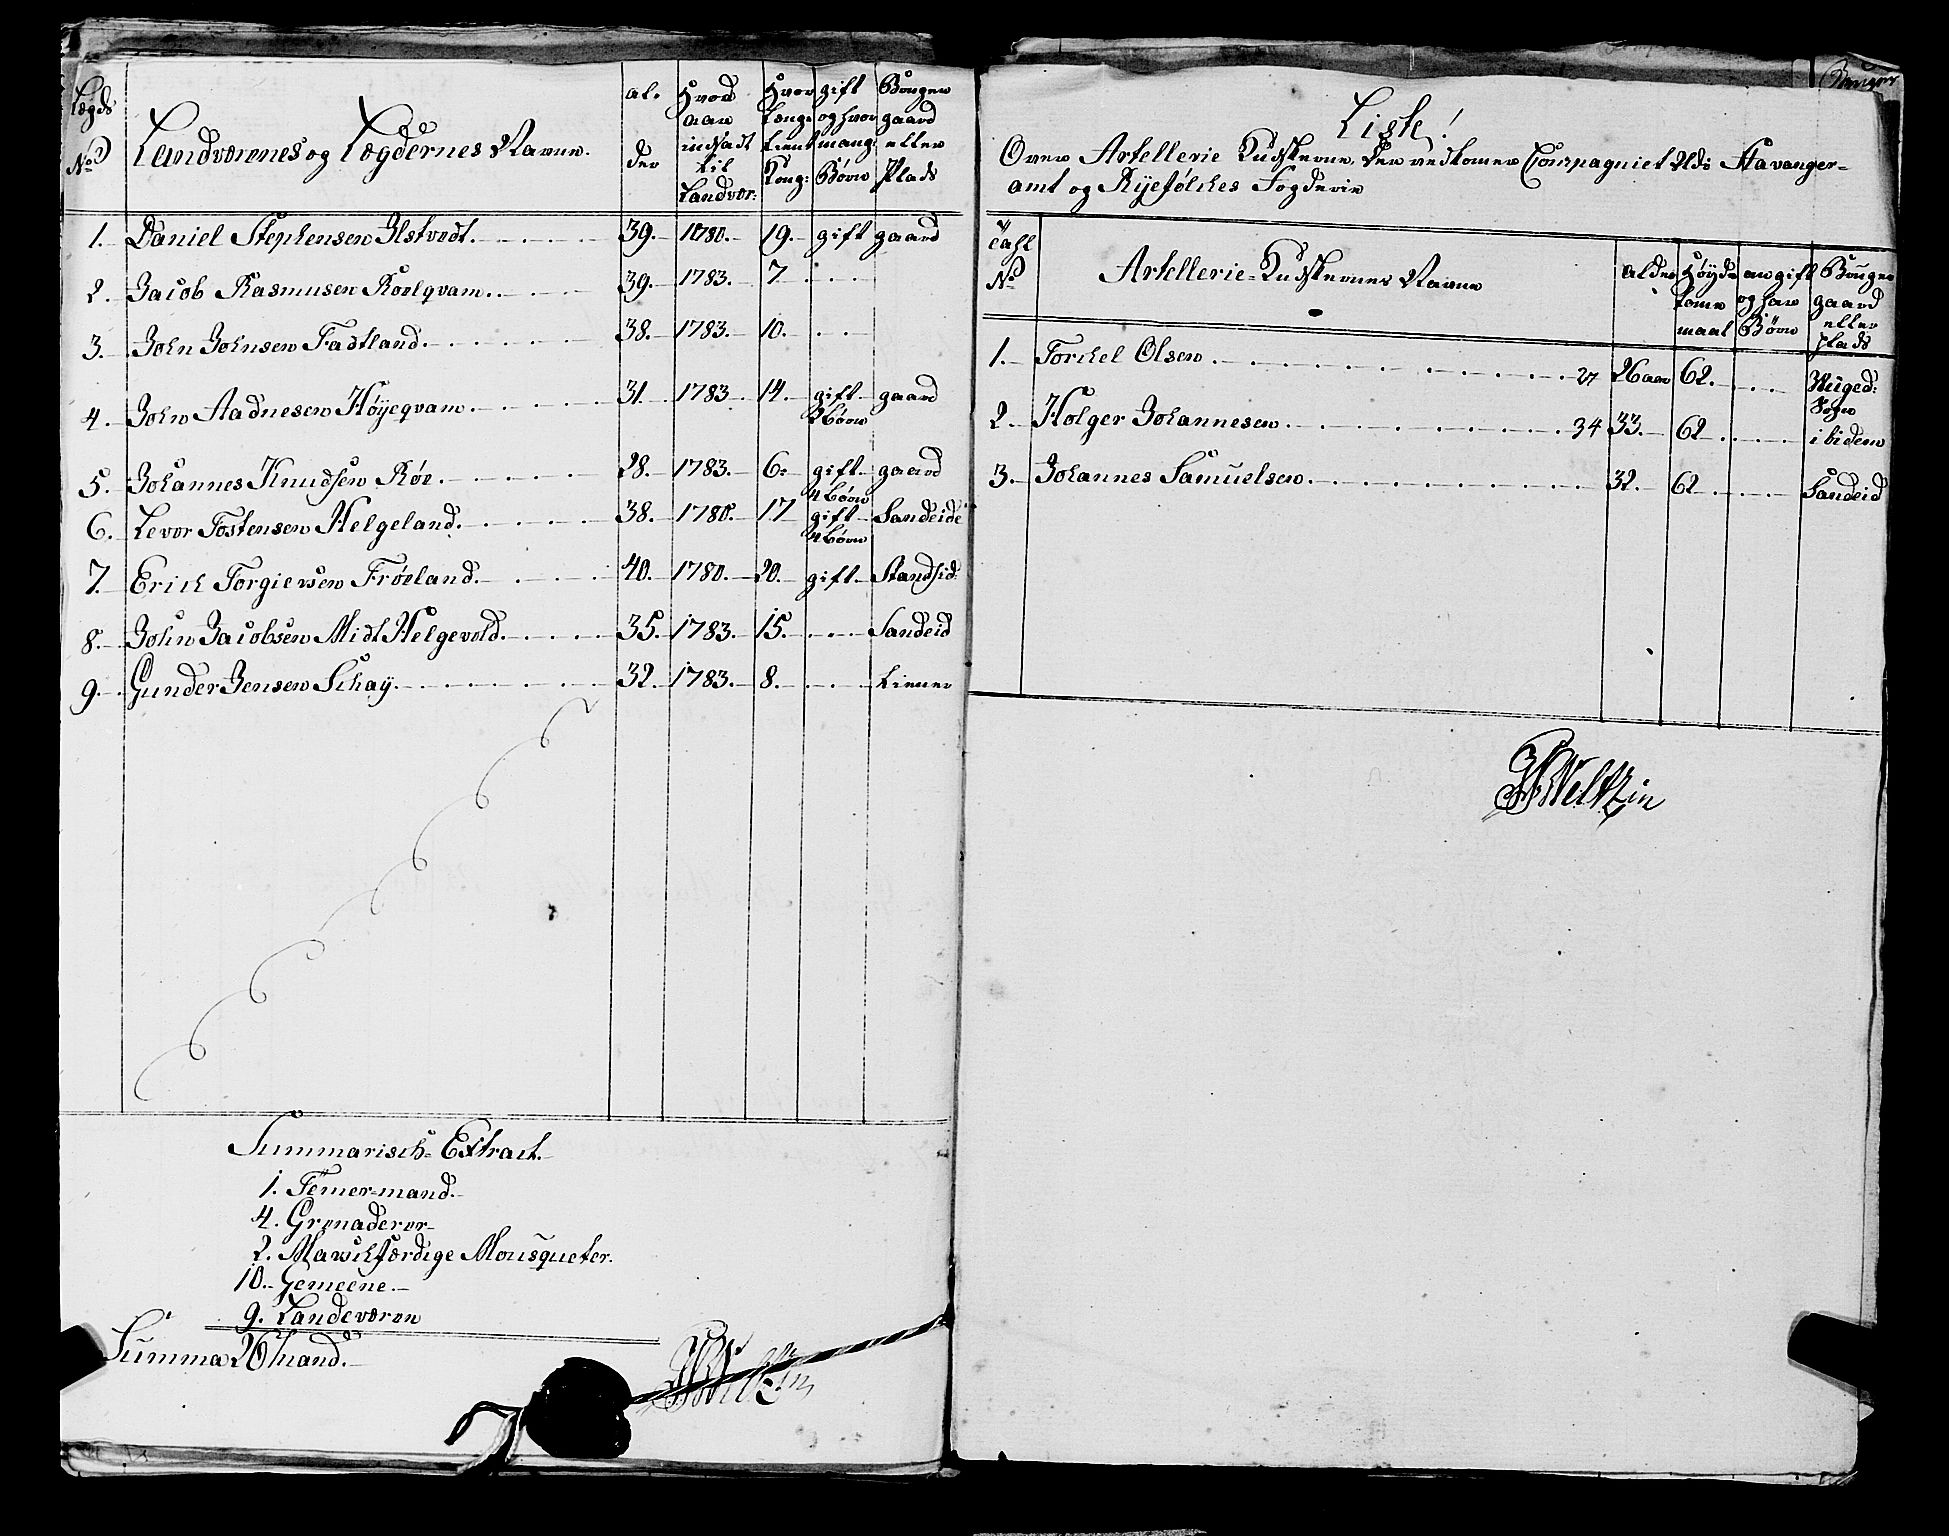 Lægds No | Landværenes og Lægdernes Navne. | al- der | Hvad aar indsadt til Landvær: | Hvor længe tient Kong: | gift og hvor mang: Børn | Bruger gaard eller Plads
1. Daniel Stephensen Ilstvedt. 39. 1780. 19. gift gaard
2. Jacob Rasmusen Röelqvam. 39. 1783. 7
3. John Johnsen Fastland. 38. 1783. 10.
4. John Aadnesen Høyeqvam. 31. 1783 14. gift 2 børn gaard
5. Johannes Knudsen Röe. 28. 1783. 6. gift 4 børn gaard
6. Levor Tostensen Helgeland. 38. 1780. 17 gift 4 børn Sandeide
7. Erich Torgiersen Frøeland. 40. 1780. 20. gift
8. John Jacobsen Midt Helgevold. 35. 1783. 15. Sandeid
9. Gunder Jensen Schay. 32. 1783. 8.
Summarisch- Extract.
1. Temer-mand.
4. Grenaderer
2. Marschfærdige Mousqueter.
10. Gemeene.
9. Landeværen
Summa 26 mand.
HWeltzin
Liste!
Over Artellerie Kudskerne, der vedkomer Compagniet udi Stavanger-
amt og Ryefølckes Fogderie
Tahl No | Artellerie-Kudskernes Navne | alder | Høyde tome maal | om gift og har Børn | Bruger gaard eller plads
1. Torchel Olsen 27 26 aar 62.
2. Holger Johannesen 34 33. 62 ibidem
3. Johannes Samuelsen 32. 62 Sandeid
HWeltzin